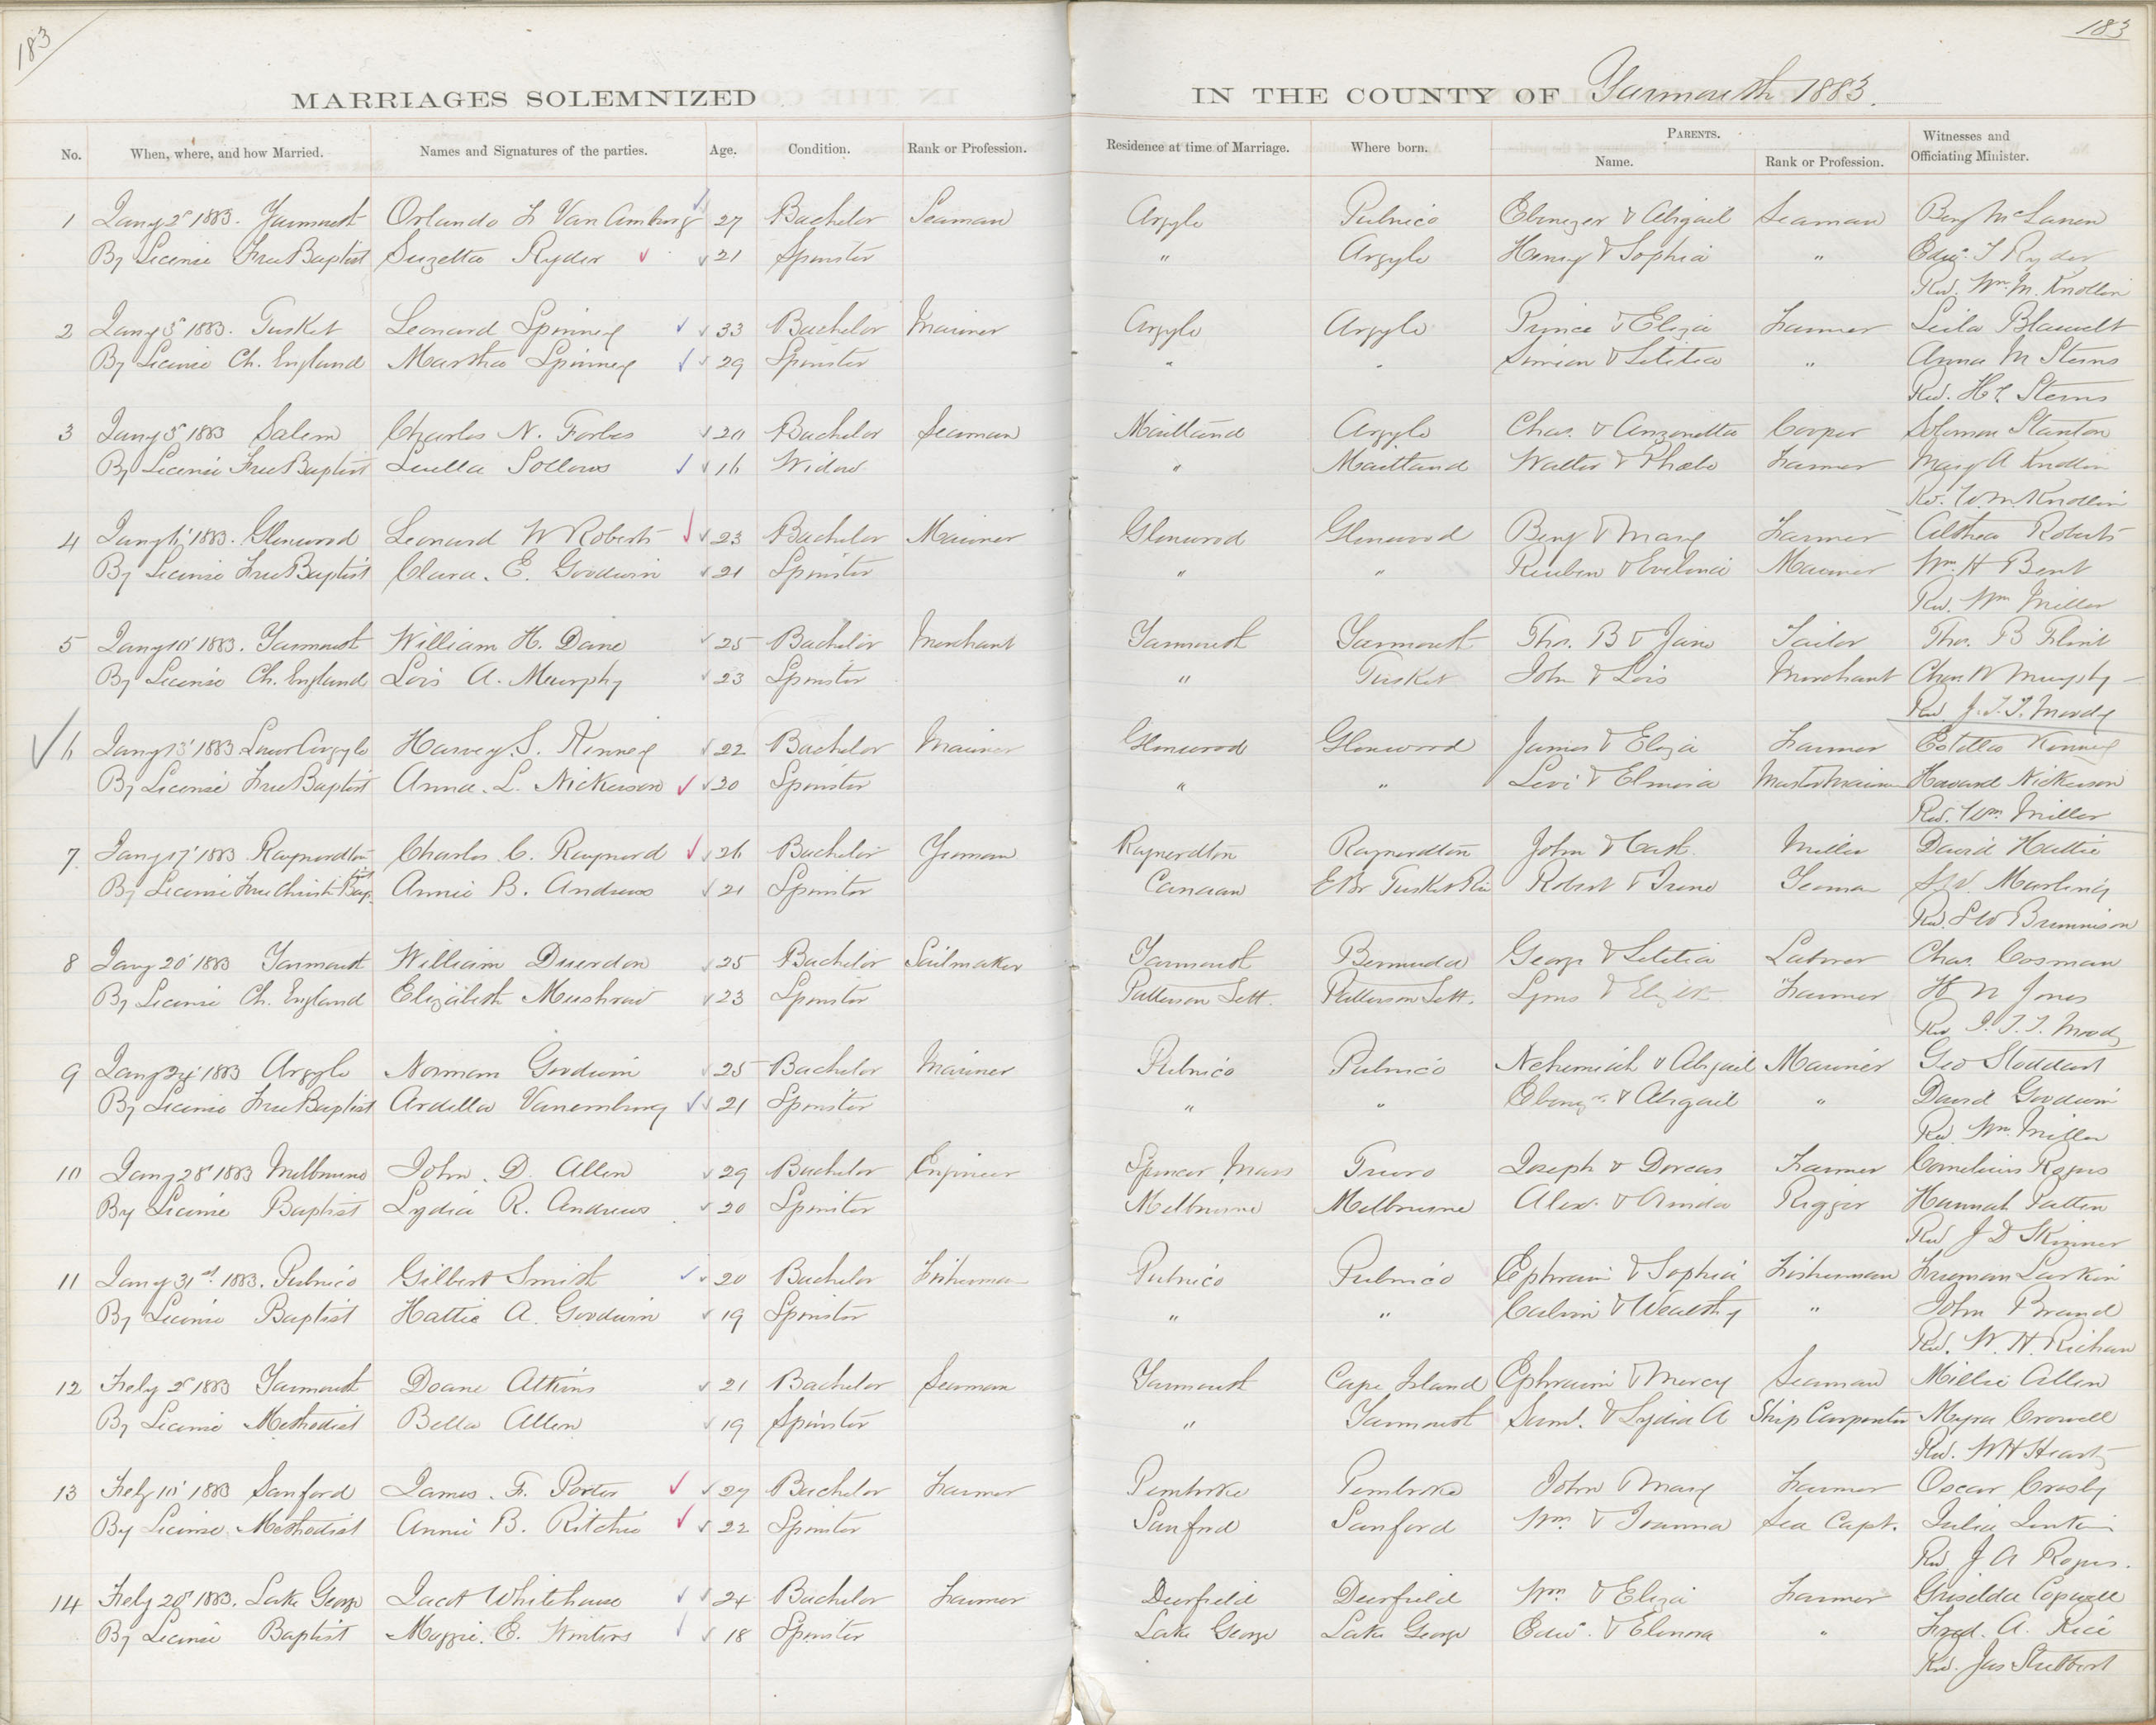 183
183
MARRIAGES SOLEMNIZED IN THE COUNTY OF Yarmouth 1883.
No. When, where, and how Married. Names and Signatures of the parties. Age. Condition. Rank or Profession. Residence at time of Marriage. Where born. PARENTS. Name. Rank or Profession. Witnesses and Officiating Minister.
1 Jany 2" 1883. Yarmouth Orlando F Van Amburg 27 Bachelor Seaman Argyle Pubnico Ebenezer & Abigail Seaman Benj McLaren
By License Free Baptist Suzetta Ryder 21 Spinster " Argyle Henry & Sophia " Edw. T Ryder
Rev. Wm. M. Knollin
2 Jany 3" 1883. Tusket Leonard Spinney 33 Bachelor Mariner Argyle Argyle Prince & Eliza Farmer Leila Blauvelt
By License Ch. England Martha Spinney 29 Spinster " " Simeon & Letitia " Anna M Sterns
Rev. H. Sterns
3 Jany 3" 1883 Salem Charles N. Forbes 20 Bachelor Seaman Maitland Argyle Chas. & Anzonetta Cooper Solomon Stanton
By License Free Baptist Luella Sollows 16 Widow " Maitland Walter & Phebe Farmer Mary A Knollin
Rev. W. M. Knollin
4 Jany 6" 1883. Glenwood Leonard W Roberts 23 Bachelor Mariner Glenwood Glenwood Benj & Mary Farmer Althea Roberts
By License Free Baptist Clara. E. Goodwin 21 Spinster " " Reuben & Evelina Mariner Wm. H Bent
Rev. Wm Miller
5 Jany 10" 1883. Yarmouth William H. Dane 25 Bachelor Merchant Yarmouth Yarmouth Thos. B & Jane Tailor Thos. B Flint
By License Ch. England Lois A. Murphy 23 Spinster " Tusket John & Lois Merchant Chas W Murphy
Rev. J. T. T. Moody
6 Jany 13" 1883 Lower Argyle Harvey. S. Kenney 22 Bachelor Mariner Glenwood Glenwood James & Eliza Farmer Estella Kenney
By License Free Baptist Anna. L. Nickerson 20 Spinster " " Levi & Elmira Master Mariner Howard Nickerson
Rev. Wm. Miller
7 Jany 17" 1883 Raynardton Charles C. Raynard 26 Bachelor Yeoman Raynardton Raynardton John & Cath. Miller David Hattie
By License Free Christn Bap. Annie B. Andrews 21 Spinster Canaan E Br Tusket Riv Robert & Irene Yeoman
Rev.
8 Jany 20" 1883 Yarmouth William Duerdon 25 Bachelor Sailmaker Yarmouth Bermuda George & Letitia Laborer Chas. Cosman
By License Ch. England Elizabeth Mushrow 23 Spinster Patterson Sett. Patterson Sett. Lyons & Farmer H N Jones
Rev. J. T. T. Moody
9 Jany 24" 1883 Argyle Norman Goodwin 25 Bachelor Mariner Pubnico Pubnico Nehemiah & Abigail Mariner Geo Stoddart
By License Free Baptist Ardella Vanemburg 21 Spinster " " Ebenzr. & Abigail " David Goodwin
Rev. Wm. Miller
10 Jany 28" 1883 Melbourne John. D. Allen 29 Bachelor Engineer Spencer Mass Truro Joseph & Dorcas Farmer Cornelius Rogers
By License Baptist Lydia R. Andrews 20 Spinster Melbourne Melbourne Alex. & Rigger Hannah Patten
Rev J D Skinner
11 Jany 31st. 1883. Pubnico Gilbert Smith 20 Bachelor Fisherman Pubnico Pubnico Ephraim & Sophia Fisherman Freeman Larkin
By License Baptist Hattie A. Goodwin 19 Spinster " " Calvin & Wealthy " John Brand
Rev. W. H. Richan
12 Feby 2" 1883 Yarmouth Doane Atkins 21 Bachelor Seaman Yarmouth Cape Island Ephraim & Mercy Seaman Millie Allen
By License Methodist Bella Allen 19 Spinster " Yarmouth Saml. & Lydia A Ship Carpenter Myra Crowell
Rev. W H Heartz
13 Feby 10" 1883 Sanford James. F. Porter 27 Bachelor Farmer Pembroke Pembroke John & Mary Farmer Oscar Crosby
By License Methodist Annie B. Ritchie 22 Spinster Sanford Sanford Wm. & Joanna Sea Capt. Julia
Rev J A Rogers.
14 Feby 20" 1883. Lake George Jacob Whitehouse 24 Bachelor Farmer Deerfield Deerfield Wm & Eliza Farmer Griselda
By License Baptist Maggie. E. Winters 18 Spinster Lake George Lake George Edw. & Elenora " Fred. A. Rice
Rev. Jas Stubbert